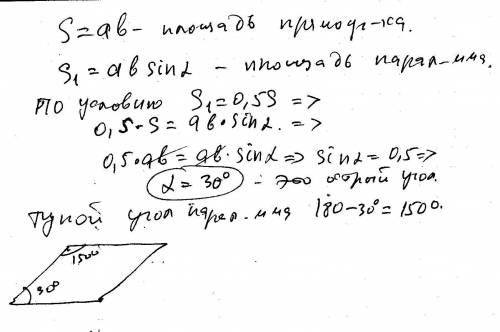 S = ab - площадь прямоуг-ка.
S₁ = ab sinα - площадь парал-мма.
По условию S₁ = 0,5S =>
0,5·S = ab·sinα. =>
0,5·ab = ab·sinα => sinα = 0,5 =>
α = 30° - это острый угол.
Тупой угол парал-мма 180-30° = 150°.
150°
30°